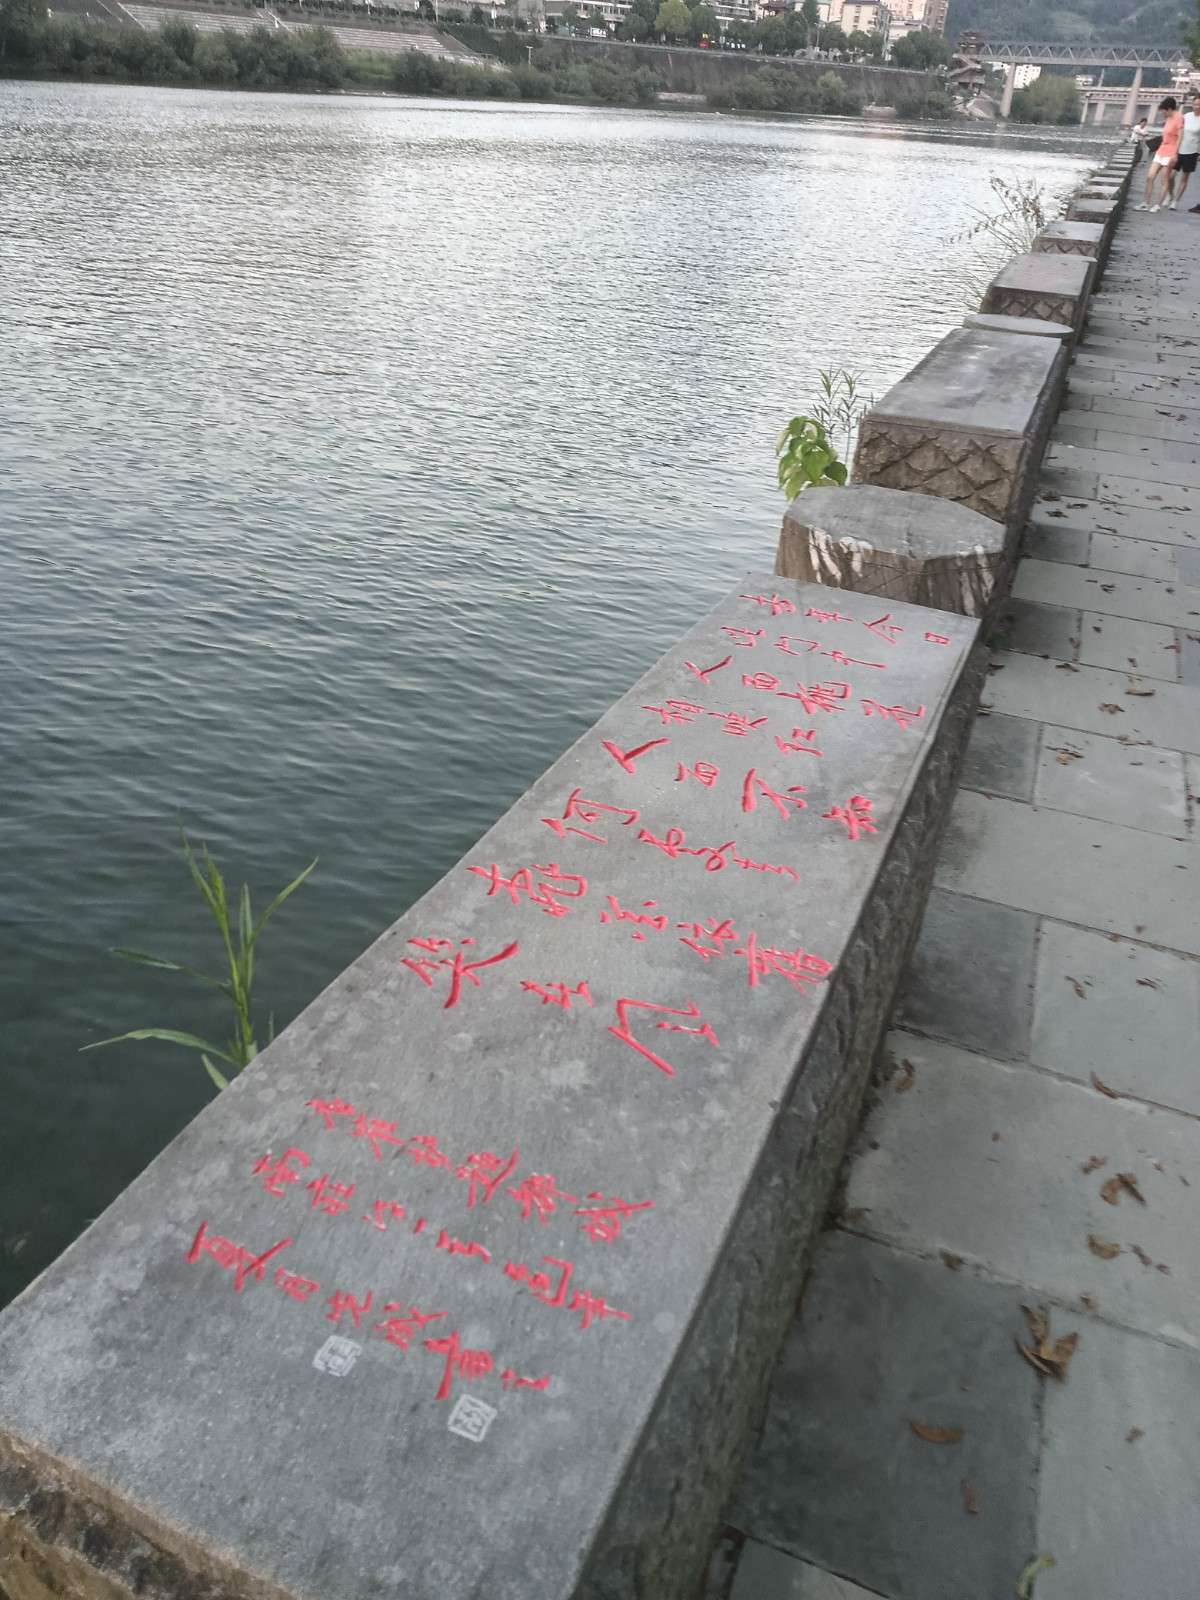 去年今日
此门中
人面桃花
相映红
人面不知
何处去
桃花依旧
笑春风
唐崔护题都城
南庄
书之